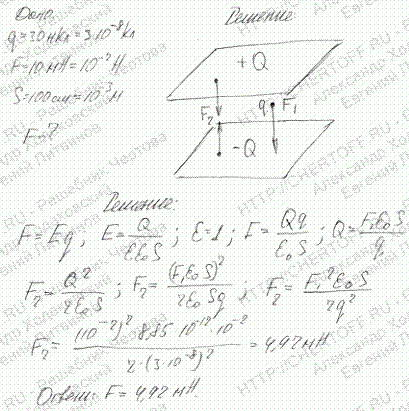 Дано:
Решение
q=30нКл=3·10⁻⁸Кл
F=10мН=10⁻²Н
S=100см=10⁻²м
F-?
+Q
F₂
q
F₁
-Q
Решение:
F=Eq, E=Q/(εε₀S); ε=1; F=Qq/(ε₀S); Q=F₁ε₀S/q
F₂=Q²/(2ε₀S); F₂=(F₁ε₀S)²/(2ε₀Sq); F₂=F₁²ε₀S/(2q²)
F₂=(10⁻²)²·8,85·10⁻¹²·10⁻²/(2·(3·10⁻⁸)²)=4,92мН.
Ответ: F=4,92мН.
HTTP://CHERTOFF-RU.RU - Решебник Чертова
Евгения Литвинов